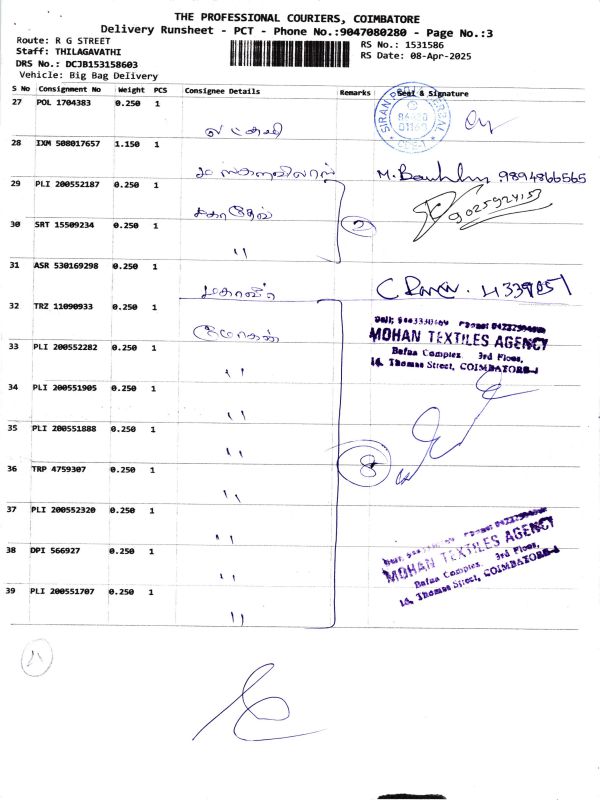 THE PROFESSIONAL COURIERS, COIMBATORE
Delivery Runsheet - PCT - Phone No.:9047080280 - Page No.:3
Route: R G STREET
Staff: THILAGAVATHI
DRS No.: DCJB153158603
Vehicle: Big Bag Delivery
RS No.: 1531586
RS Date: 08-Apr-2025
S No Consignment No Weight PCS Consignee Details Remarks Seal & Signature
27 POL 1704383 0.250 1
28 IXM 508017657 1.150 1
9894866565
29 PLI 200552187 0.250 1
30 SRT 15509234 0.250 1
"
2
31 ASR 530169298 0.250 1
மகாவீர்
32 TRZ 11090933 0.250 1
மோகன்
MOHAN TEXTILES AGENCY
Bafna Complex 3rd Floor,
14, Thomas Street, COIMBATORE-1
33 PLI 200552282 0.250 1
"
34 PLI 200551905 0.250 1
"
35 PLI 200551888 0.250 1
"
8
36 TRP 4759307 0.250 1
"
37 PLI 200552320 0.250 1
"
38 DPI 566927 0.250 1
"
MOHAN TEXTILES AGENCY
Bafna Complex 3rd Floor,
14, Thomas Street, COIMBATORE-1
39 PLI 200551707 0.250 1
"